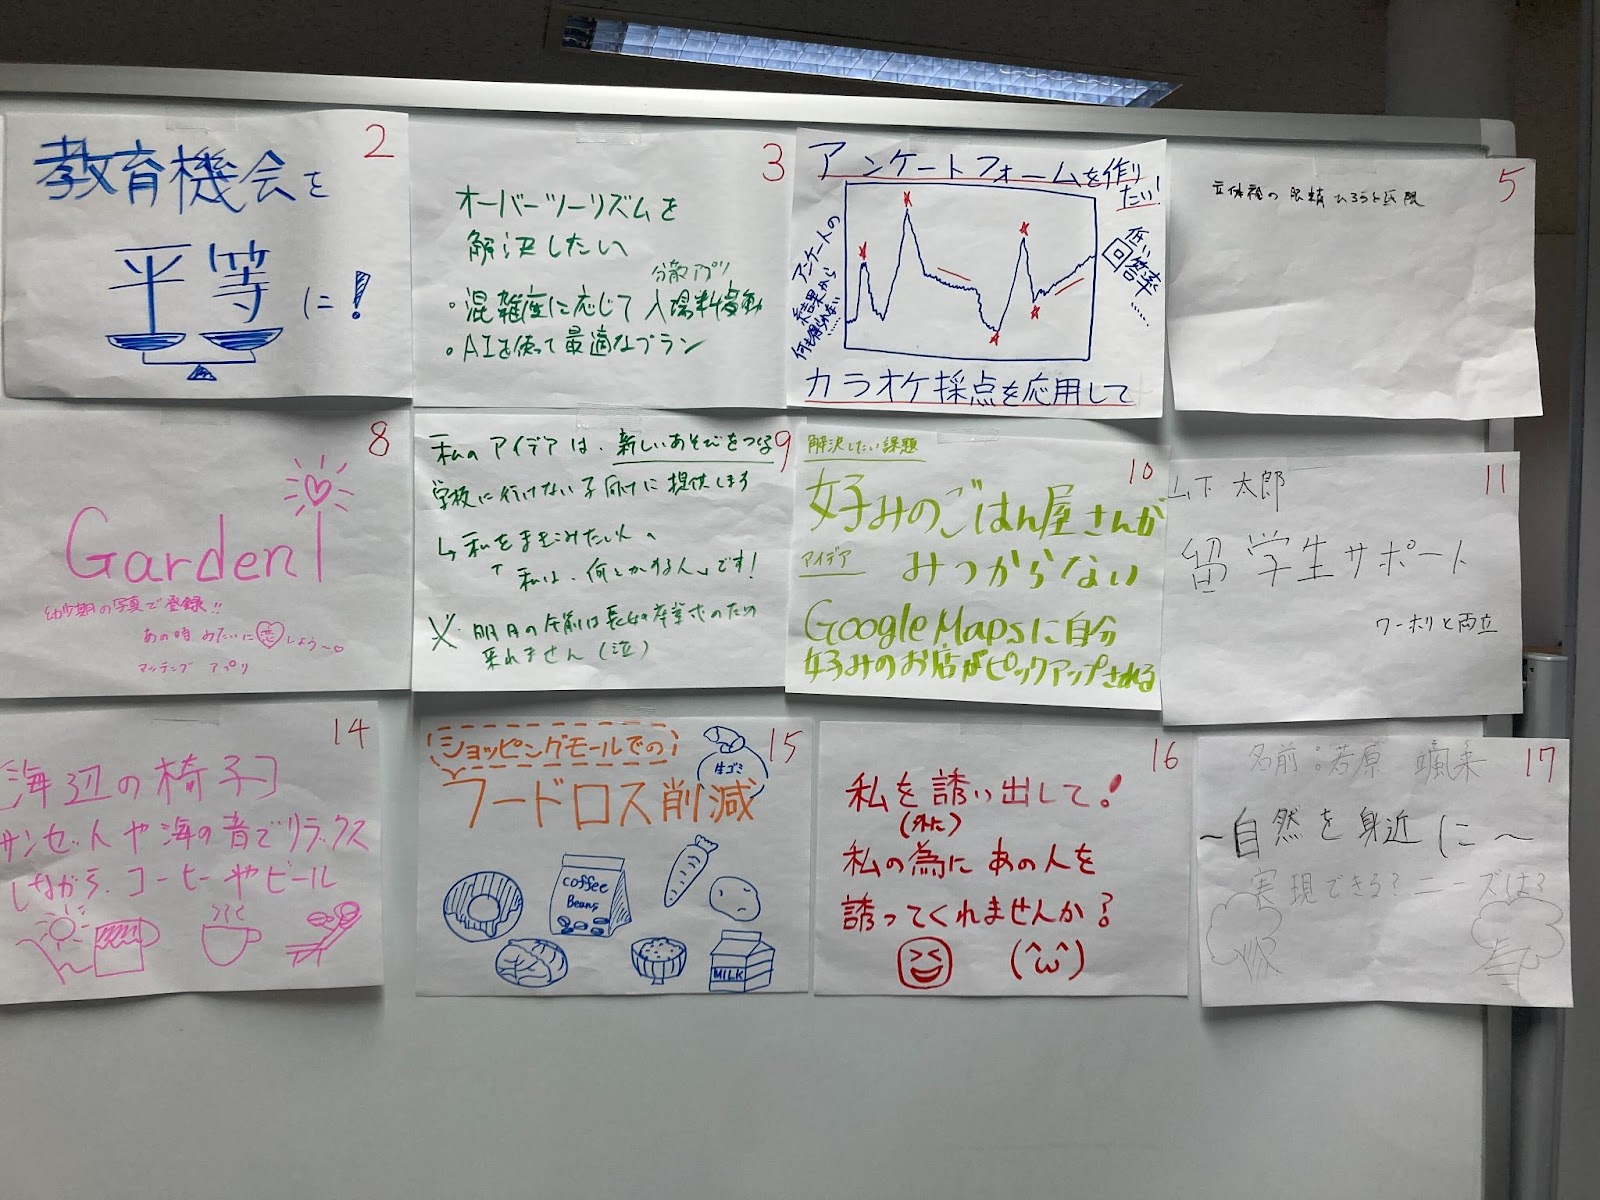 2
教育機会を
平等に!
3
オーバーツーリズムを
解決したい
分散アプリ
・混雑度に応じて 入場料変動
・AIを使って最適なプラン
アンケートフォームを作り
たい!
アンケートの
結果から
何も得られない……
低い
回答率……
カラオケ採点を応用して
5
8
Garden!
幼少期の写真で登録!!
あの時みたいに恋しよう〜
マッチングアプリ
9
私のアイデアは、新しいあそびをつくる
学校に行けない子向けに提供します
↳ 私を
「私は、何とかする人」です!
※・明日の午前は長女の卒業式のため
来れません(泣)
10
解決したい課題
好みのごはん屋さんが
みつからない
アイデア
Google Mapsに自分
好みのお店がピックアップされる
11
山下 太郎
留学生サポート
ワーホリと両立
14
海辺の椅子
サンセットや海の音でリラックス
しながら、コーヒーやビール
15
ショッピングモールでの
フードロス削減
生ゴミ
coffee
Beans
MILK
16
私を誘い出して!
(外に)
私の為にあの人を
誘ってくれませんか?
(^ω^)
17
名前:若原 颯来
〜自然を身近に〜
実現できる?ニーズは?